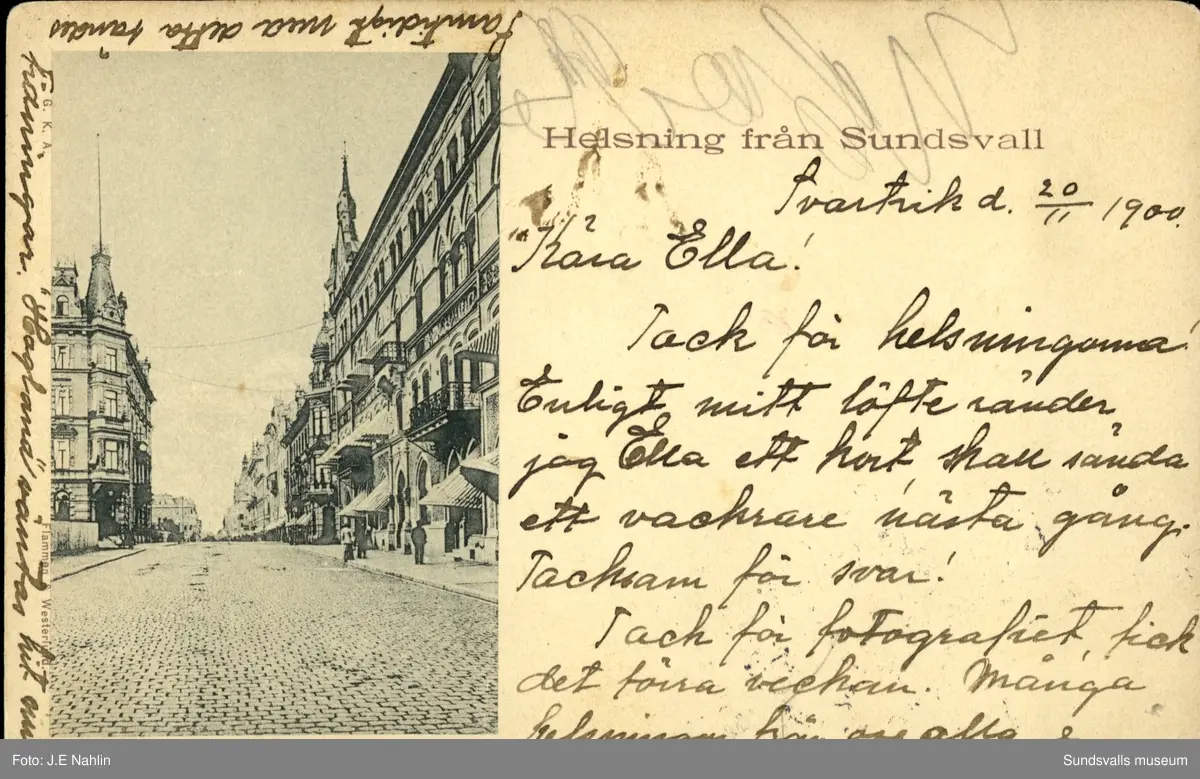 Samtidigt med detta sändes
tidningar. "Haglarna" väntas hit om
G. K. A.
Helsning från Sundsvall
Svartvik d. 20/11 1900.
Kära Ella!
Tack för helsningarna!
Enligt mitt löfte sänder
jag Ella ett kort, skall sända
ett vackrare nästa gång.
Tacksam för svar!
Tack för fotografiet, fick
det förra veckan. Många
helsningar från oss alla
Foto: J.E Nahlin
Sundsvalls museum